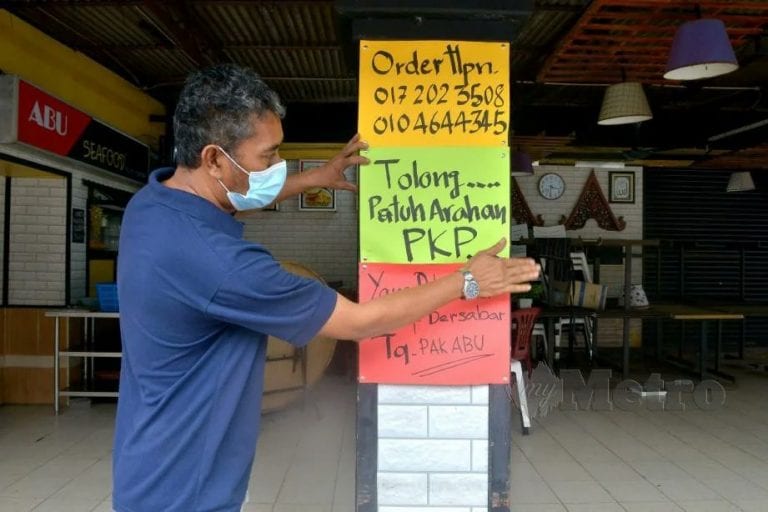 Order Hpn.
017 202 3508
010 4644345
Tolong....
Patuh Arahan
PKP.
Bersabar
Tq - PAK ABU
ABU
SEAFOOD
my Metro